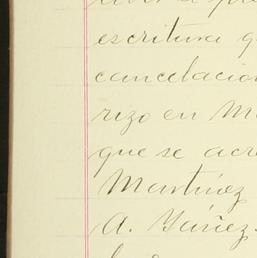 escritura q
cancelacion
rizo en M
que se acr
Martínez
A. Yáñez.